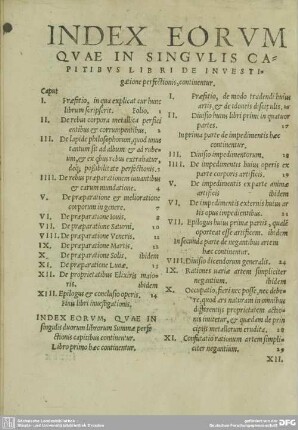 INDEX EORVM
QVAE IN SINGVLIS CA-
PITIBVS LIBRI DE INVESTI-
gatione perfectionis, continentur.
Caput
I. Præfatio, in qua explicat cur hunc
librum scripserit. Folio.
II. De rebus corpora metallica perfici
entibus & corrumpentibus. 2
III. De lapide philosophorum, quod mu-
tantium sit ad album & ad rubeū
um, & ex quibus rebus extrahatur,
possibilitate perfectionis.
IIII. De rebus præparationem iuuantibus
& earum mundatione. 4
V. De præparatione & melioratione
corporum in genere. 7
VI. De præparatione Iouis. 8
VII. De præparatione Saturni. 11
VIII. De præparatione Veneris. 12
IX. De præparatione Martis. 12
X. De præparatione Solis. ibidem
XI. De præparatione Lunæ. 13
XII. De proprietatibus Elixiris maio-
ris. ibidem
XIII. Epilogus & conclusio operis. 14
Finis libri inuestigationis.
INDEX EORVM, QVAE IN
singulis duorum librorum Summæ perfe-
ctionis capitibus continentur.
Libro primo hæc continentur.
I. Præfatio, de modo tradendi huius
artis, & de idoneis discipulis.
II. Diuisio huius libri primi in quatuor
partes. 17
In prima parte de impedimentis hæc
continentur.
III. Diuisio impedimentorum. 18
IIII. De impedimentis huius operis ex
parte corporis artificis. ibidem
V. De impedimentis ex parte animæ
artificis ibidem
VI. De impedimentis externis huius ar
tis opus impedientibus. 21
VII. Epilogus huius primæ partis, qualē
oporteat esse artificem. ibidem
In secunda parte de negantibus artem
hæc continentur.
VIII. Diuisio dicendorum generalis.
IX. Rationes uariæ artem simpliciter
negantium. ibidem
X. Occupatio, fieri nec posse, nec debe-
re, quod ars naturam in omnibus
differentijs proprietatem actio-
nis imitetur, & quædam de prin-
cipijs metallorum erudita. 28
XI. Confutatio rationum artem simpli-
citer negantium. 29
XII.